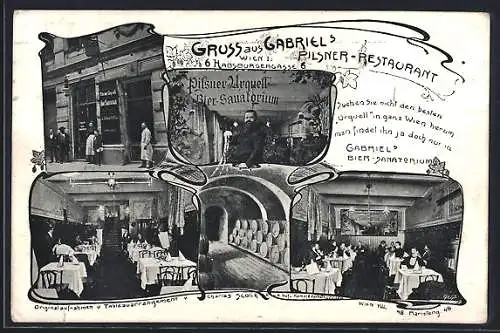 GRUSS AUS GABRIEL'S
WIEN I.
PILSNER-RESTAURANT
6 HABSBURGERGASSE 6
Pilsner Urquell
Bier-Sanatorium
Suchen Sie nicht den besten
"Urquell" in ganz Wien herum,
man findet ihn ja doch nur in
GABRIEL'S
BIER-SANATORIUM
Originalaufnahmen u Tableauarrangement v Charles Scolik
Wien VIII.
48 Mariateng 48